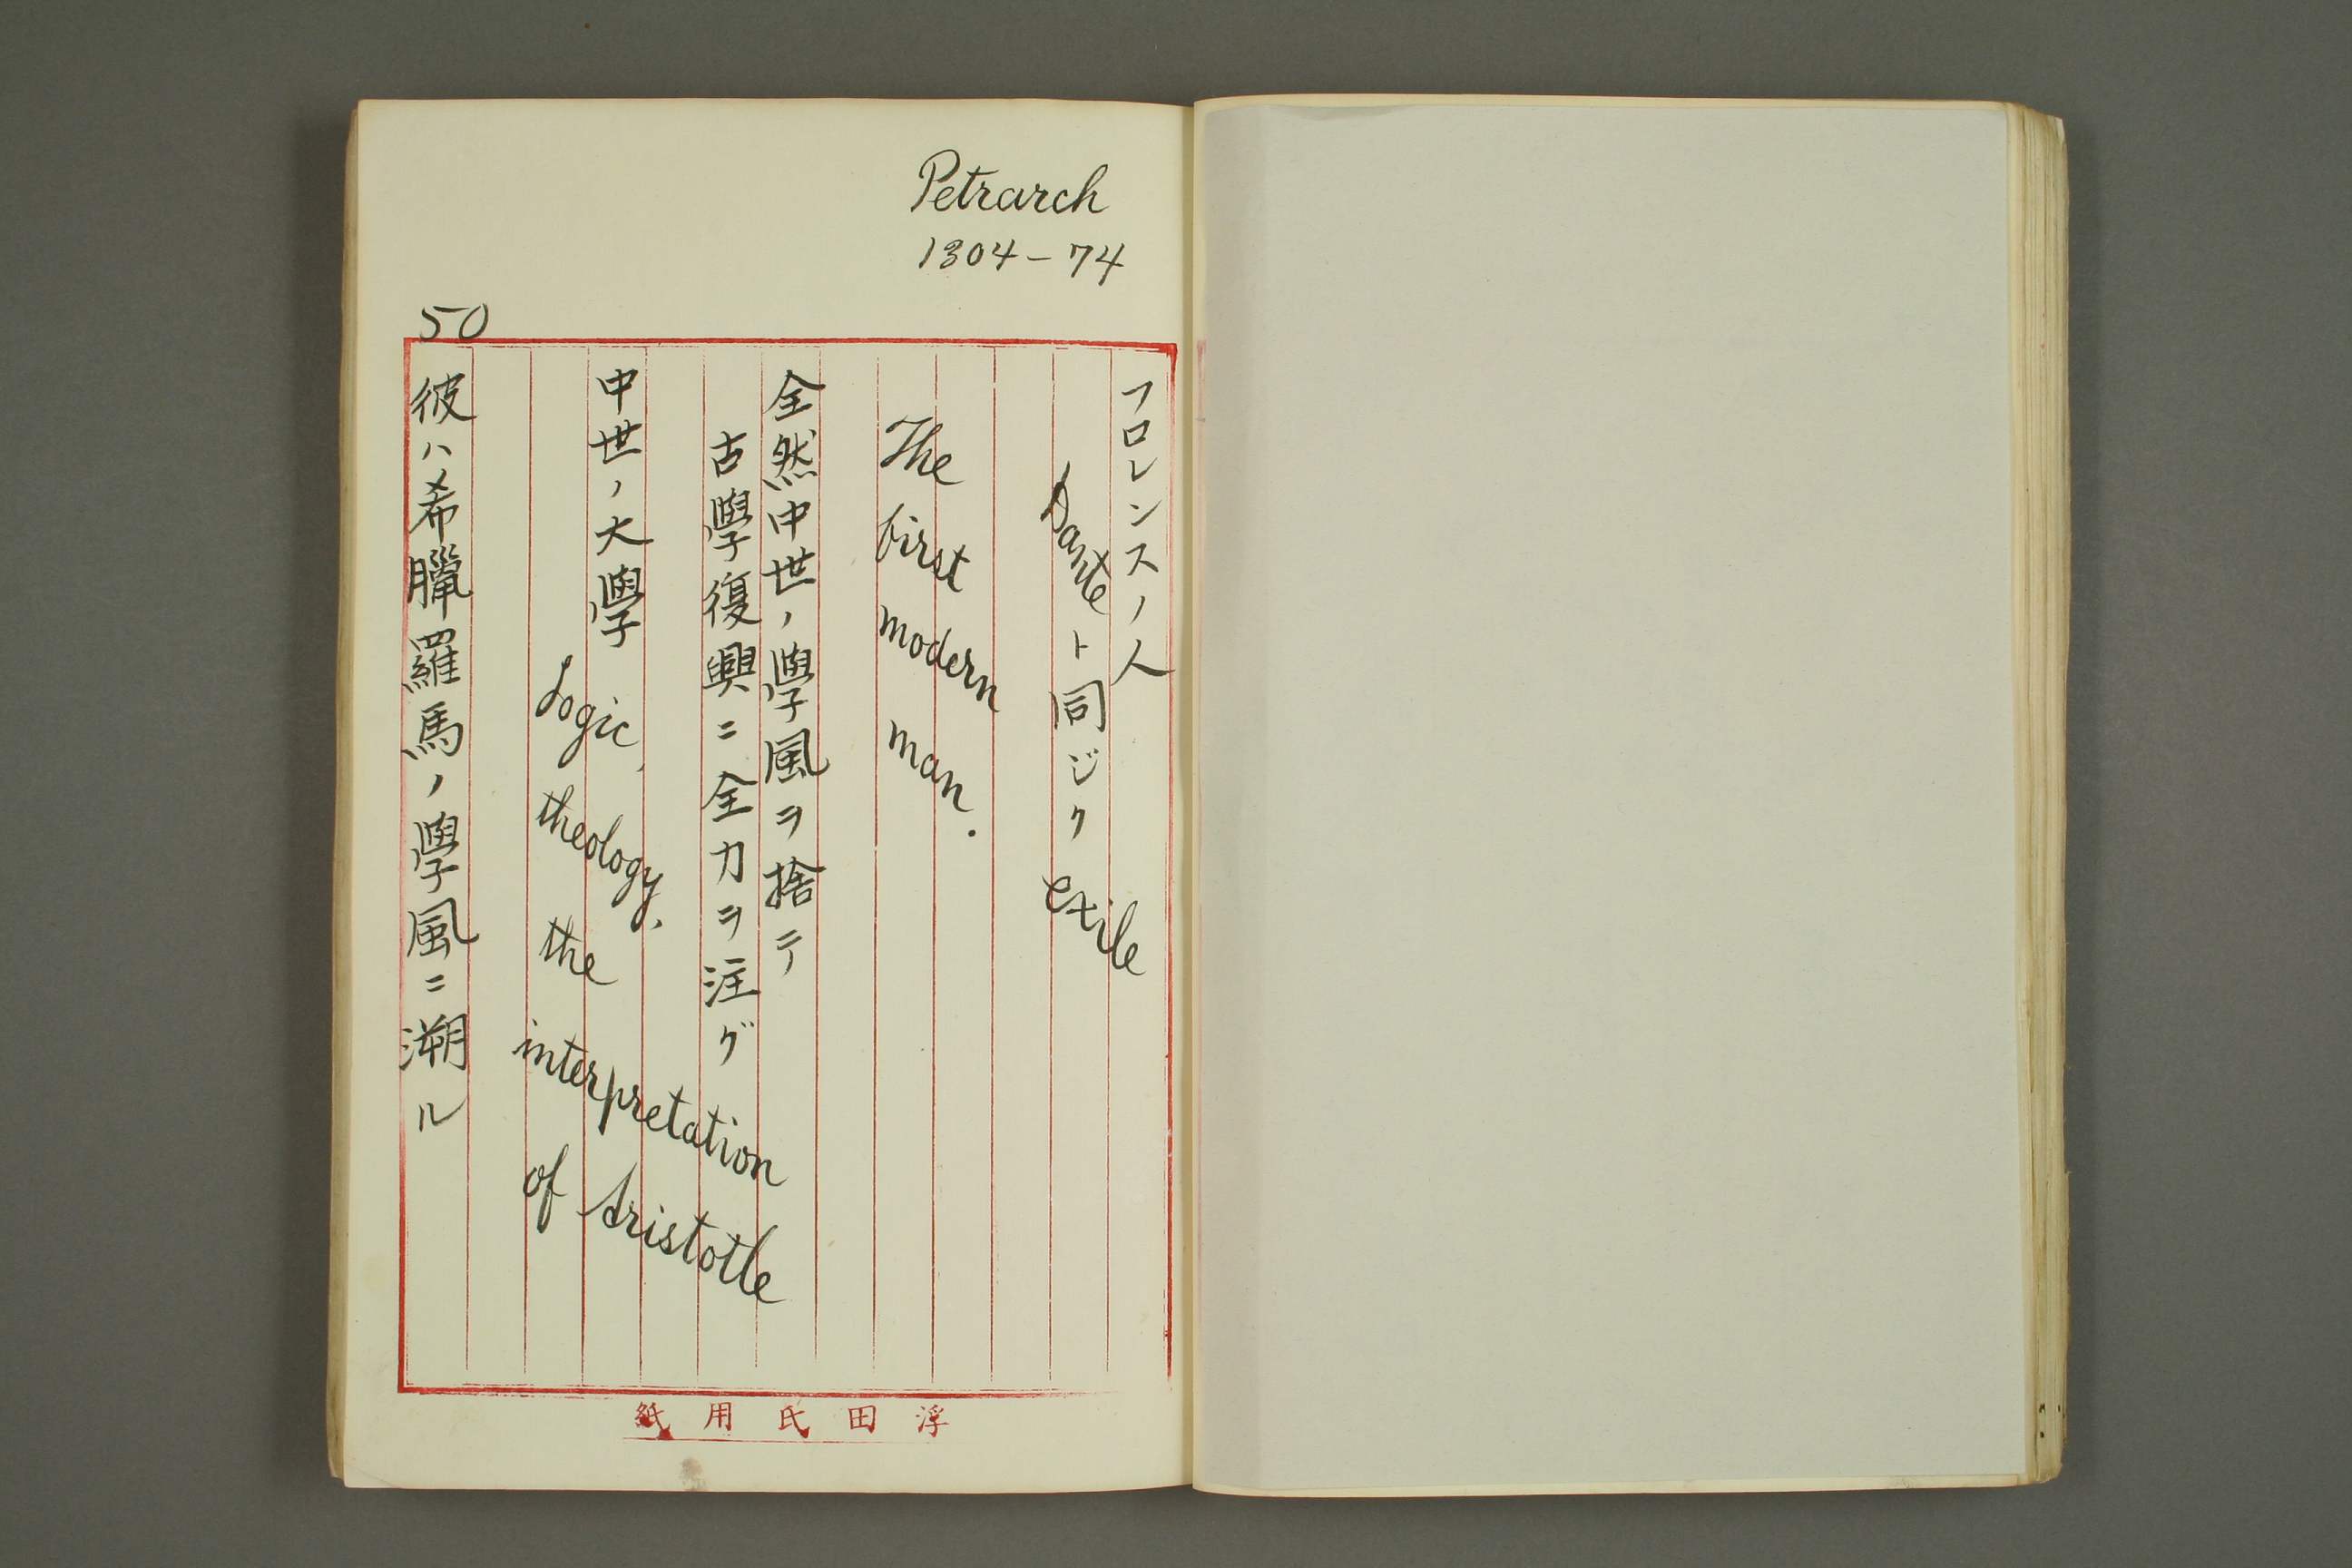 Petrarch
1304-74
フロレンスノ人
Danteト同ジク exile
The first modern man.
全然中世ノ學風ヲ捨テ
古學復興ニ全力ヲ注グ
中世ノ大學
Logic, theology, the interpretation of Aristotle
50
彼ハ希臘羅馬ノ學風ニ溯ル
浮田氏用紙